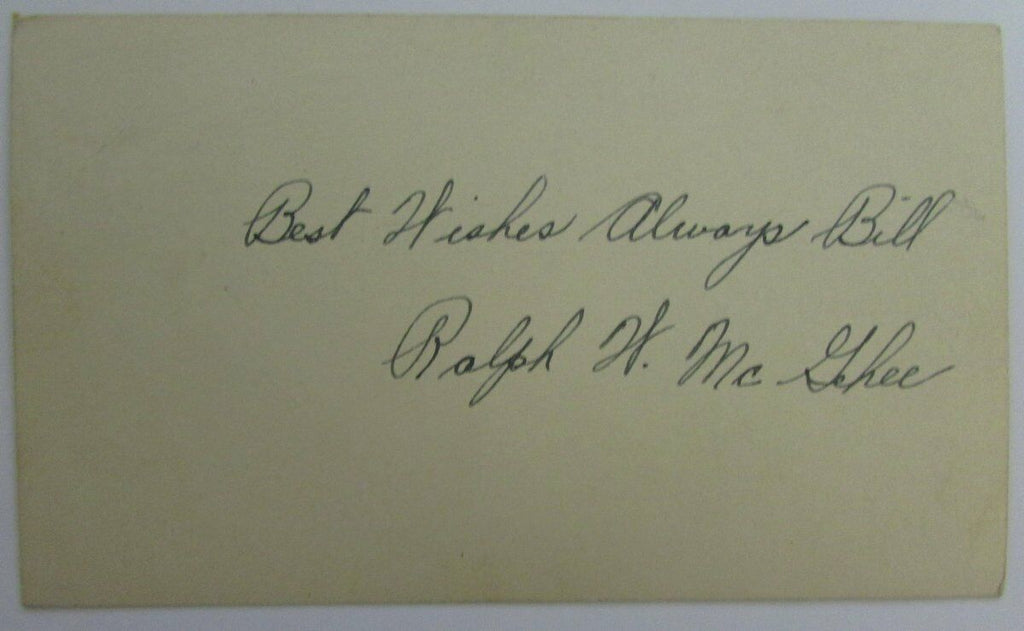 Best Wishes Always Bill
Ralph W. Mc Ghee